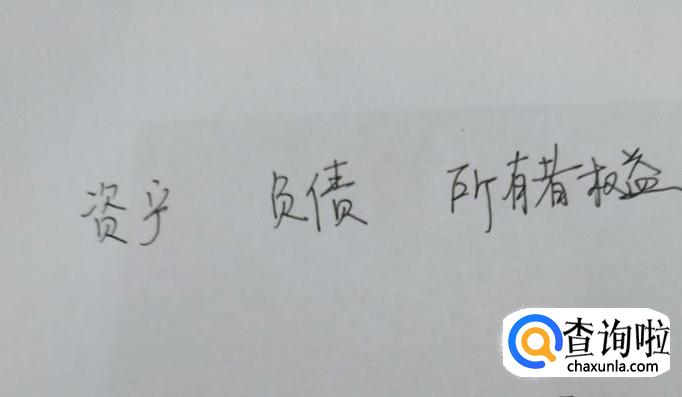 资产 负债 所有者权益
查询啦
chaxunla.com